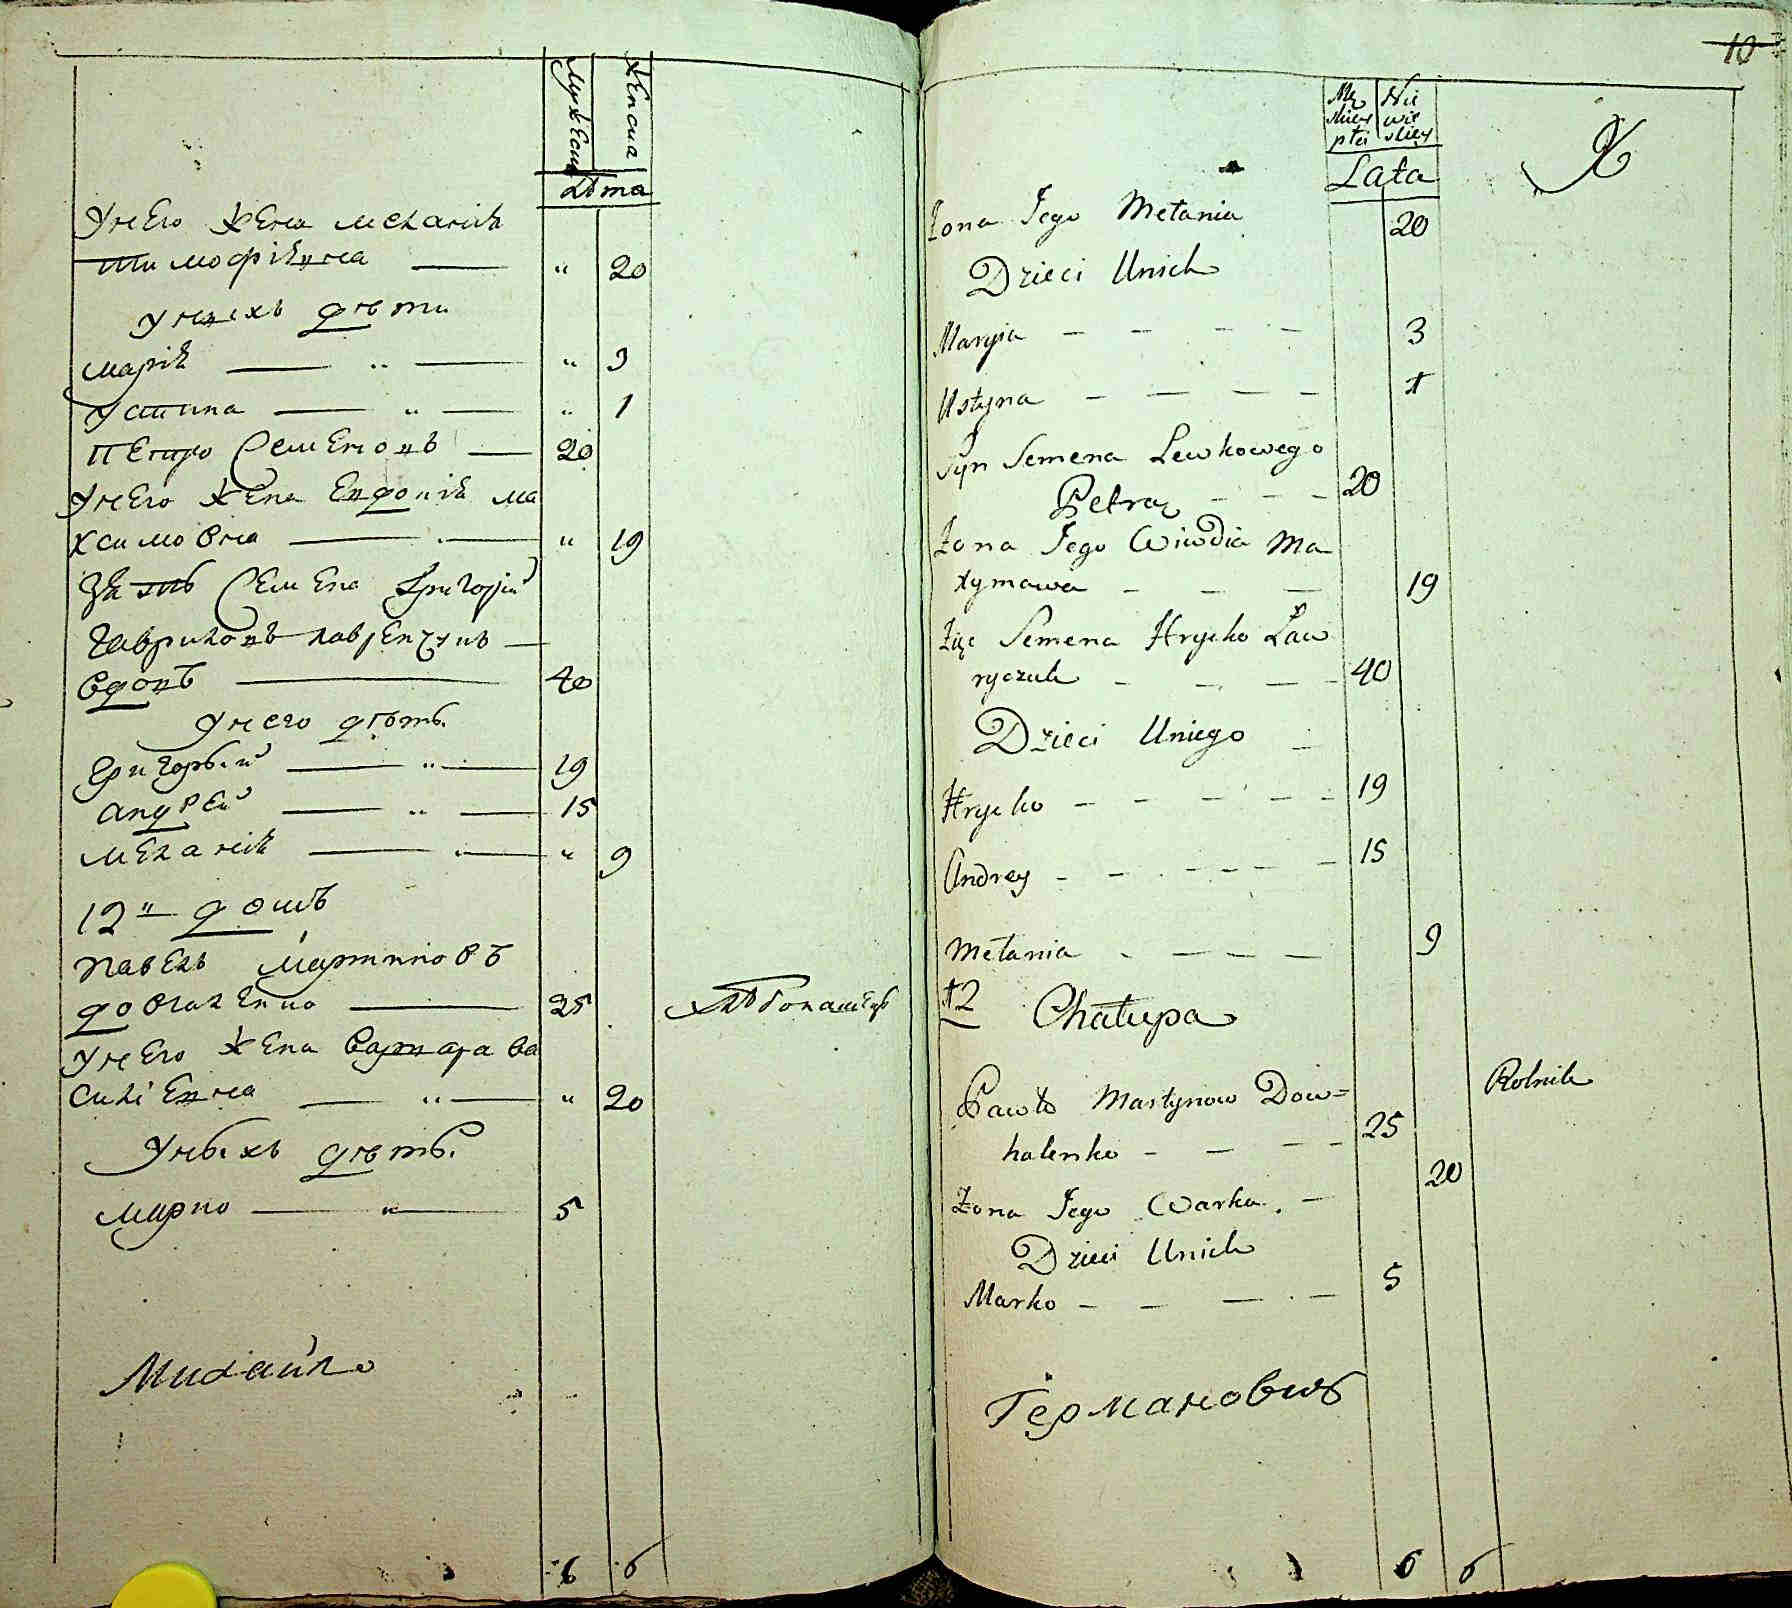 Мужеска
Женска
Лѣта
У него жена Меланія
Тимофіевна — " 20
У нихъ дѣти
Марія — " — " 3
Устина — " — " 1
Петро Семеновъ — 20
У него жена Евдокія Ма
ксимовна — " 19
Зять Семена Григорій
Гавриловъ
вдовъ — 40
У него дѣти
Григорій — " — 19
Андрей — " — 15
Меланія — " — " 9
12" домъ
Павелъ Мартиновъ
— 25 хлѣбопашецъ
У него жена Варвара Ва
силіевна — " — " 20
У нихъ дѣти
Марко — " — 5
Михайло
6 6
10
Mę skiey płci
Nie wie skiey
Lata
X
Żona Jego Mełania 20
Dzieci Unich
Maryia - - - - 3
Ustyna - - - - 1
Syn Semena Lewkowego
Petra - - - 20
Żona Jego Wiwdia Ma
xymowa - - - 19
Zięc Semena Hryćko Ław
ryczuk - - - - 40
Dzieci Uniego -
Hryćko - - - - - 19
Andrey - - - - - - 15
Mełania - - - - 9
12 Chałupa
Pawło Martynow Dow=
halenko - - - - 25 Rolnik
Żona Jego Warka - 20
Dzieci Unich
Marko - - - - 5
Германовичъ
6 6